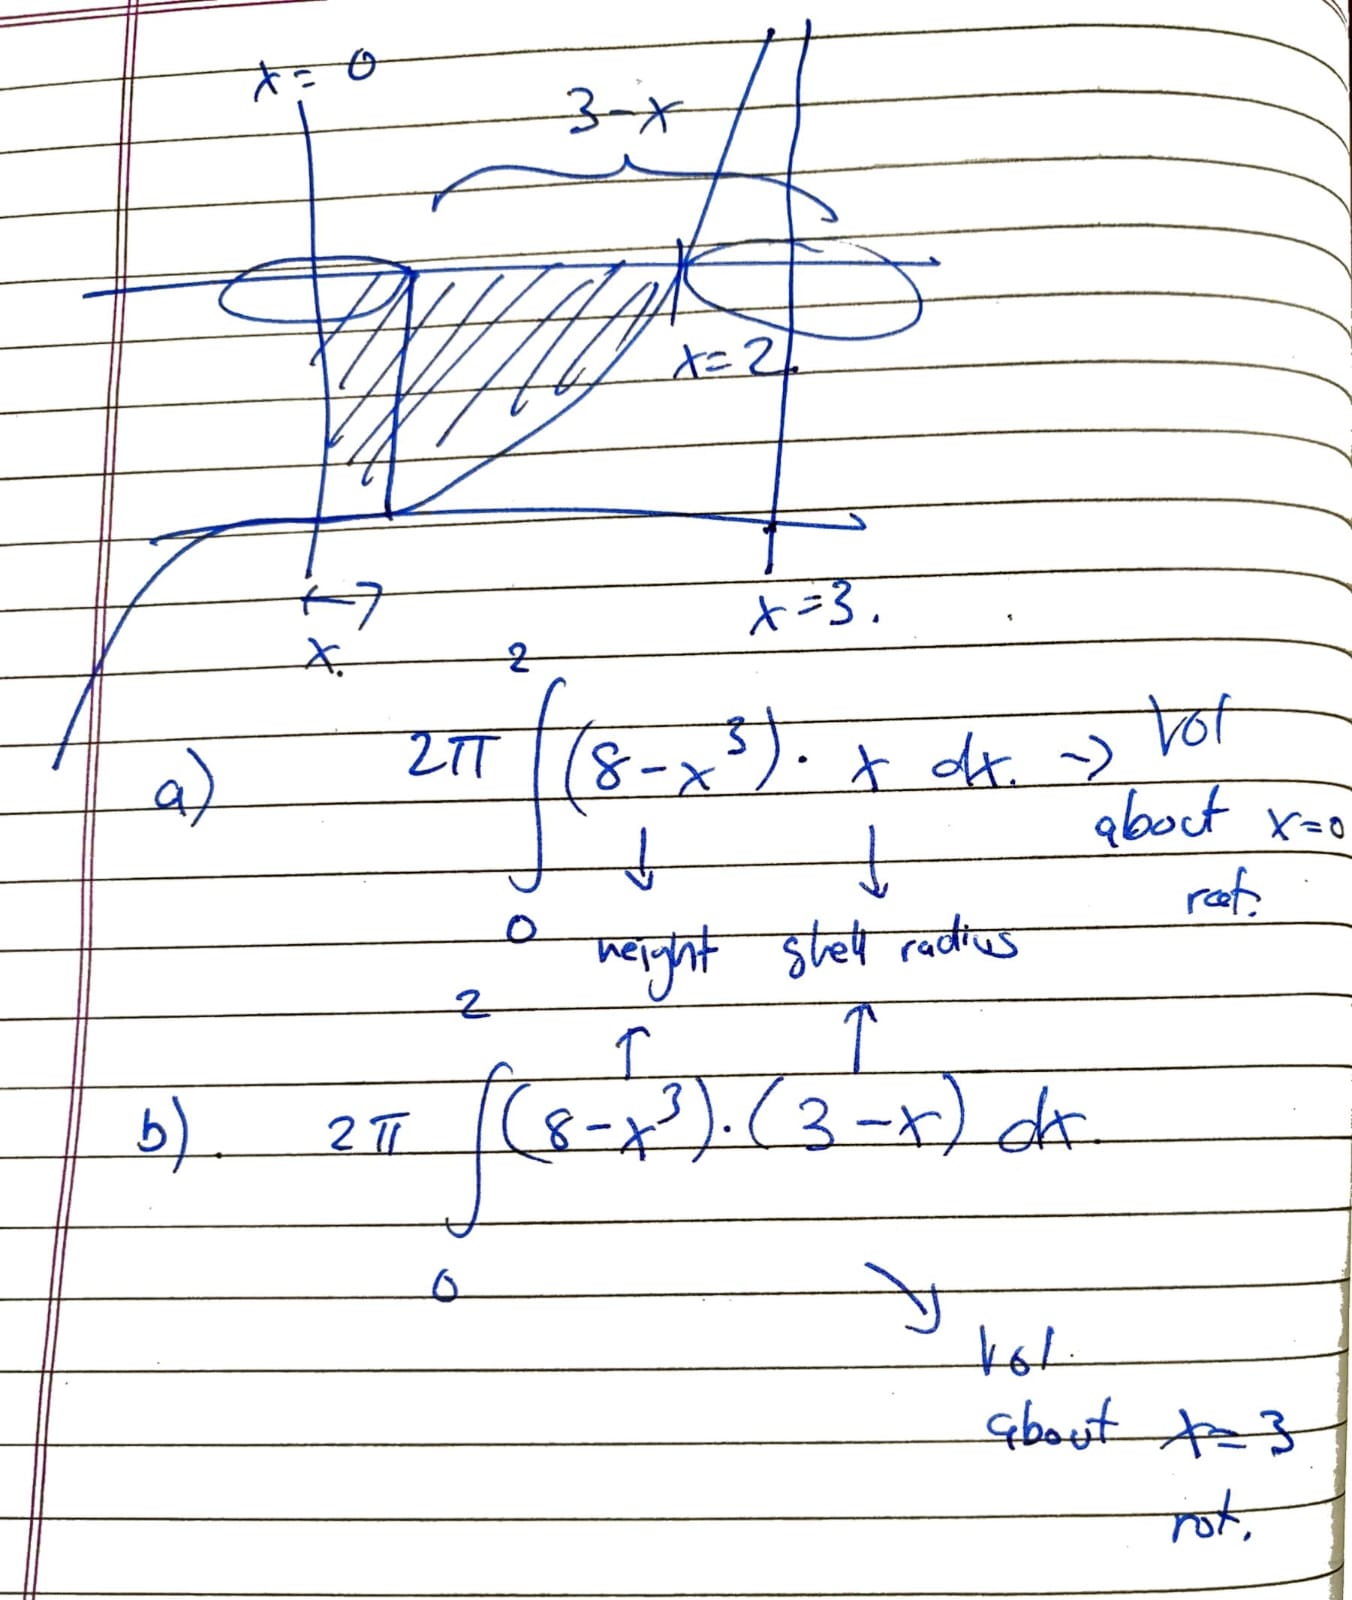 x = 0
3-x
x=2.
x=3.
x.
a) 2π ∫₀² (8-x³). x dx. → Vol
about x=0
rot.
height shell radius
b). 2π ∫₀² (8-x³).(3-x) dx.
Vol.
about x=3
rot.